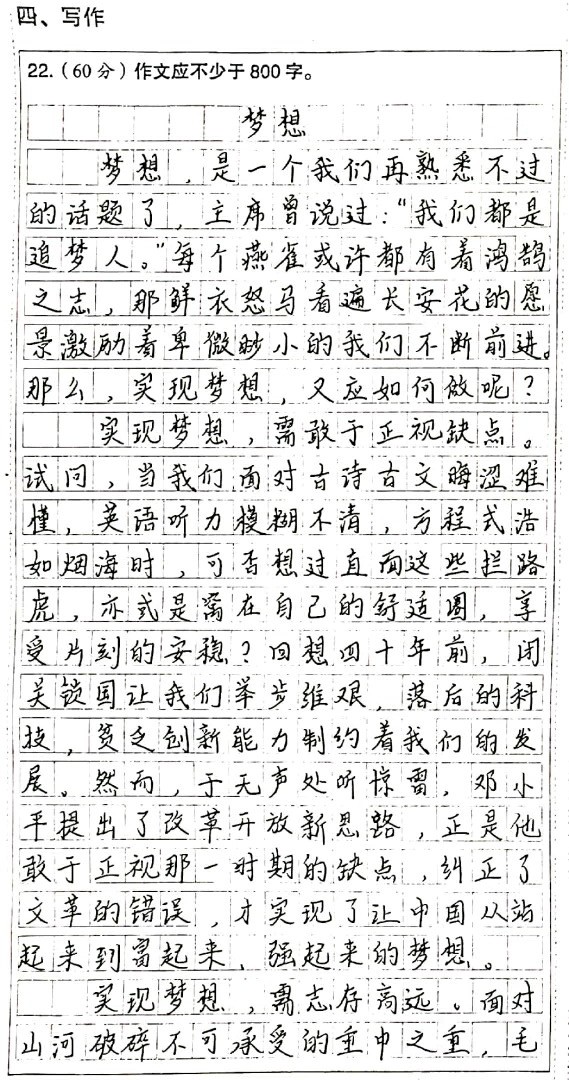 四、写作
22.（60分）作文应不少于800字。
梦想
梦想，是一个我们再熟悉不过
的话题了，主席曾说过：“我们都是
追梦人。”每个燕雀或许都有着鸿鹄
之志，那鲜衣怒马看遍长安花的愿
景激励着卑微渺小的我们不断前进。
那么，实现梦想，又应如何做呢？
实现梦想，需敢于正视缺点。
试问，当我们面对古诗古文晦涩难
懂，英语听力模糊不清，方程式浩
如烟海时，可否想过直面这些拦路
虎，亦或是窝在自己的舒适圈，享
受片刻的安稳？回想四十年前，闭
关锁国让我们举步维艰，落后的科
技，贫乏创新能力制约着我们的发
展。然而，于无声处听惊雷，邓小
平提出了改革开放新思路，正是他
敢于正视那一时期的缺点，纠正了
文革的错误，才实现了让中国从站
起来到富起来、强起来的梦想。
实现梦想，需志存高远。面对
山河破碎不可承受的重中之重，毛